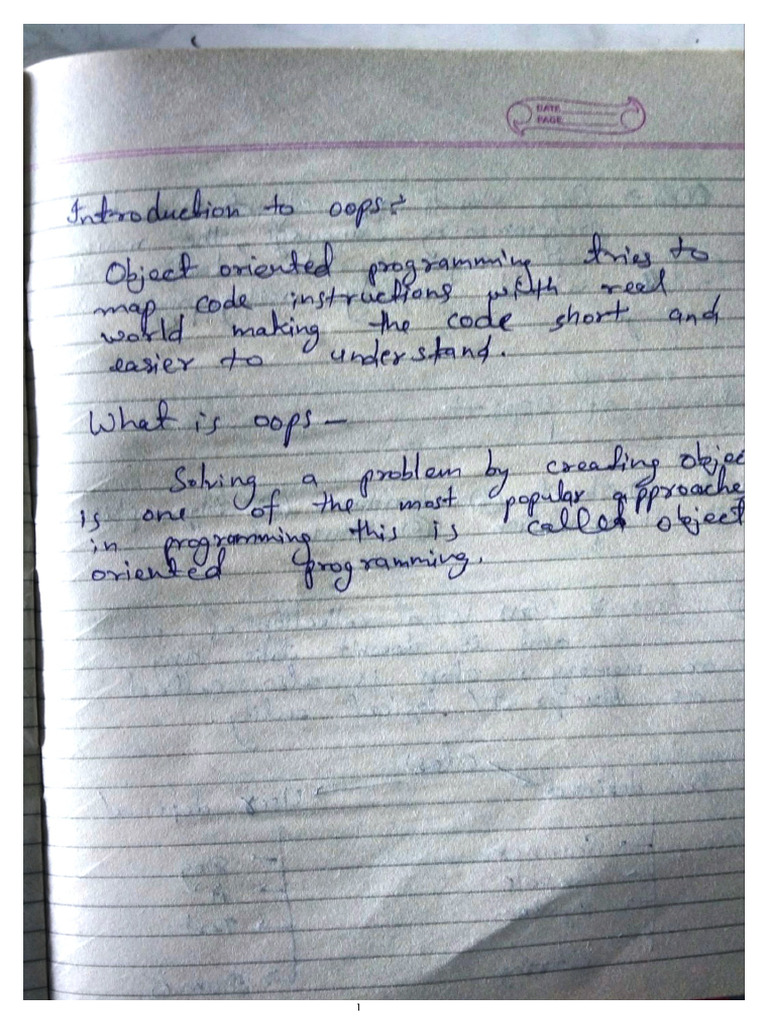 DATE
PAGE
Introduction to oops:-
Object oriented programming tries to
map code instructions with real
world making the code short and
easier to understand.
What is oops –
Solving a problem by creating objec
is one of the most popular approache
in programming this is called object
oriented programming.
1